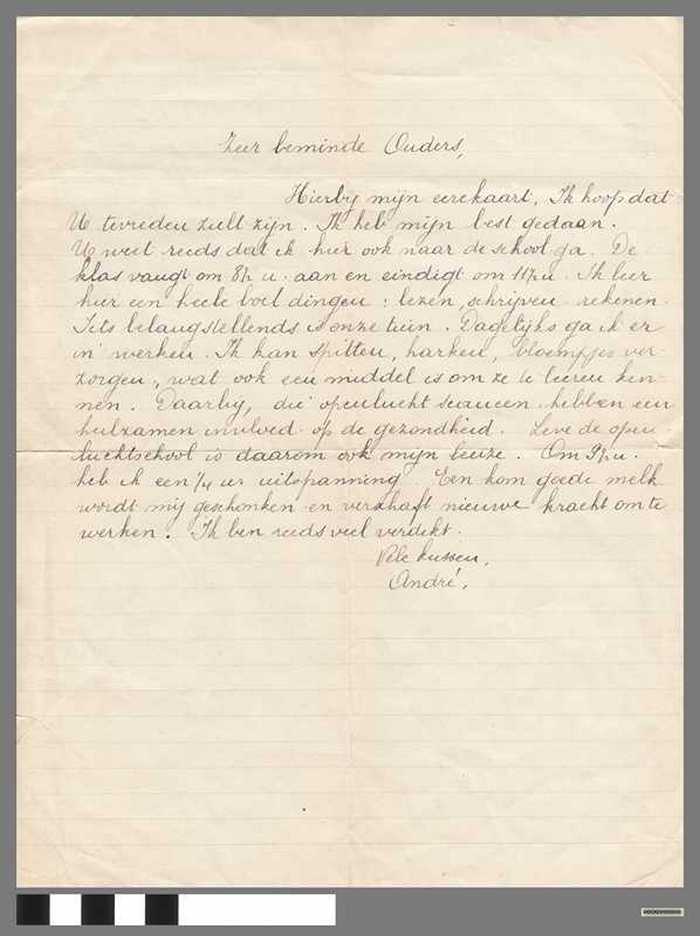 Zeer beminde Ouders,
Hierbij mijn eerekaart. Ik hoop dat
U tevreden zult zijn. Ik heb mijn best gedaan.
U weet reeds dat ik hier ook naar de school ga. De
klas vangt om 8½ u. aan en eindigt om 11½ u. Ik leer
hier een heele boel dingen: lezen, schrijven rekenen.
Iets belangstellends is onze tuin. Dagelijks ga ik er
in werken. Ik kan spitten, harken, bloempjes ver-
zorgen, wat ook een middel is om ze te leeren ken-
nen. Daarbij, die openlucht hebben een
heilzamen invloed op de gezondheid. Leve de open-
luchtschool is daarom ook mijn leuze. Om 9½ u.
heb ik een ¼ ur uitspanning. Een kom goede melk
wordt mij geschonken en verschaft nieuwe kracht om te
werken. Ik ben reeds veel verdikt.
Vele kussen,
André,